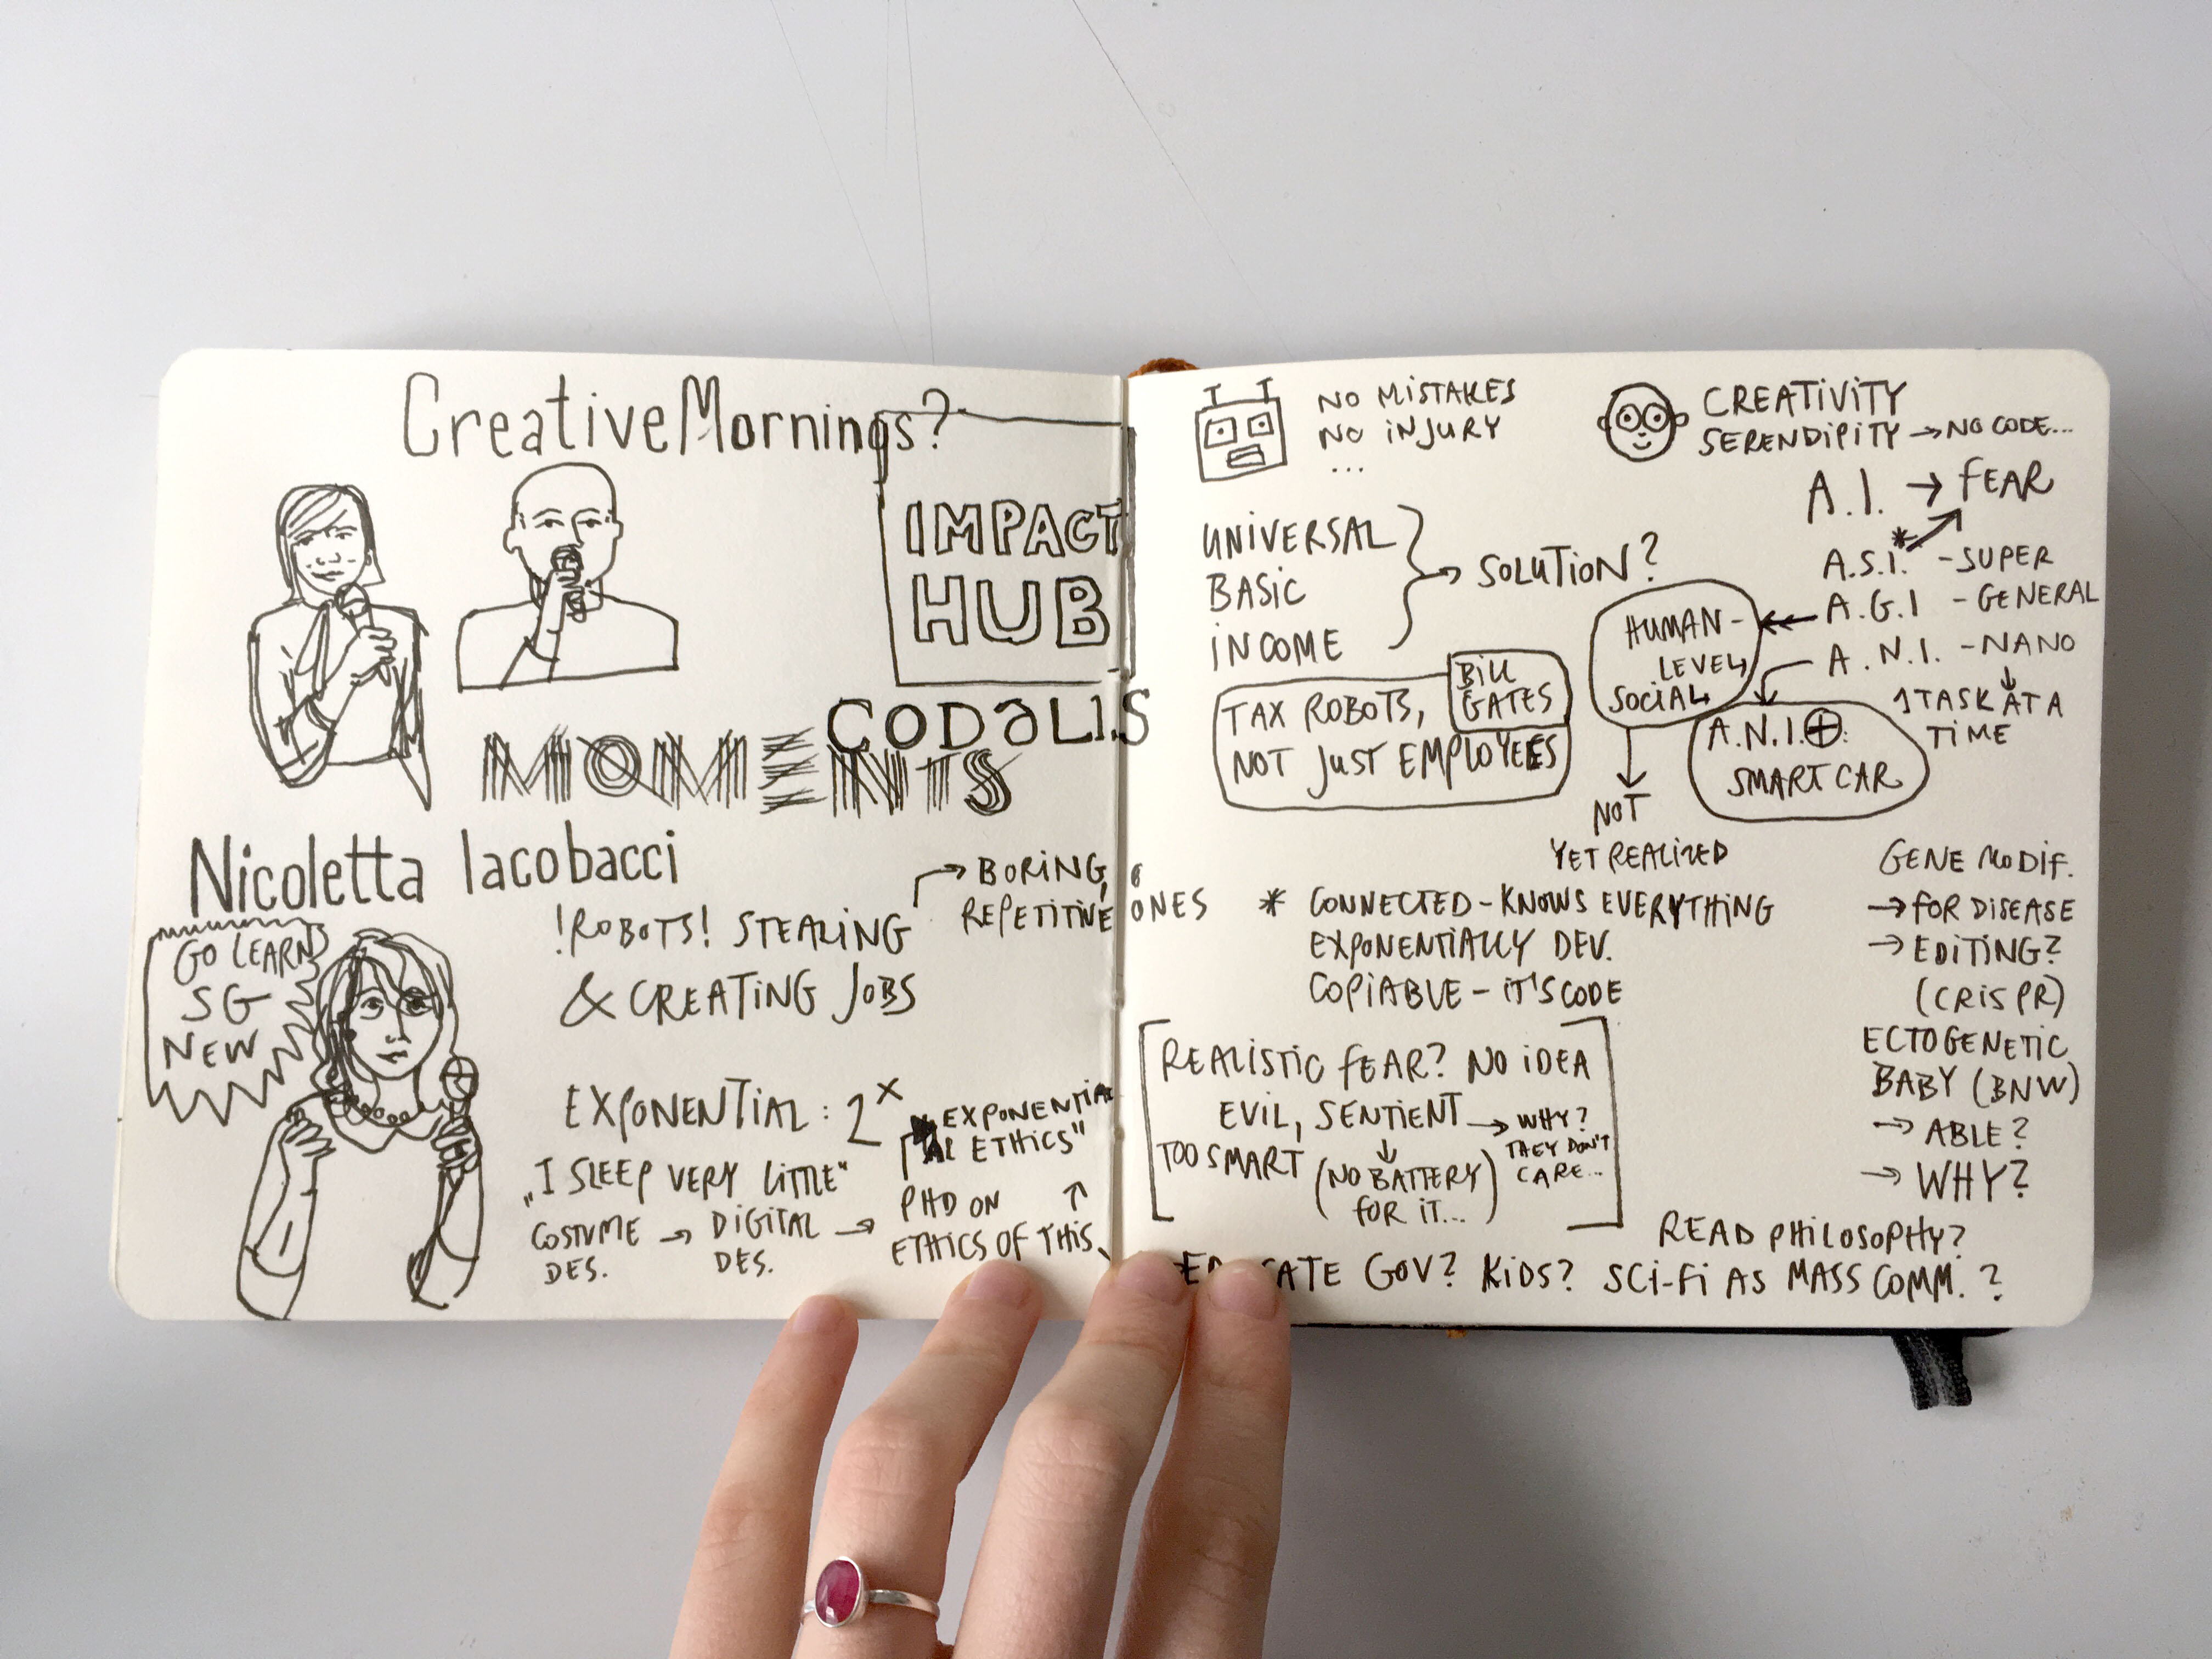 CreativeMornings?
IMPACT
HUB
CODALIS
MOMENTS
Nicoletta Iacobacci
GO LEARN
SG
NEW
!ROBOTS! STEALING
→ BORING,
REPETITIVE ONES
& CREATING JOBS
EXPONENTIAL: 2^x
EXPONENTIAL
ETHICS"
„I SLEEP VERY LITTLE"
COSTUME → DIGITAL → PHD ON
DES. DES. ETHICS OF THIS
NO MISTAKES
NO INJURY
...
CREATIVITY
SERENDIPITY → NO CODE...
A.I. → FEAR
UNIVERSAL
BASIC
INCOME
→ SOLUTION?
A.S.I.* - SUPER
A.G.I - GENERAL
A.N.I. - NANO
↓
1 TASK AT A
TIME
HUMAN-
LEVEL,
SOCIAL
A.N.I.⊕:
SMART CAR
TAX ROBOTS,
BILL
GATES
NOT JUST EMPLOYEES
NOT
YET REALIZED
* CONNECTED - KNOWS EVERYTHING
EXPONENTIALLY DEV.
COPIABLE - IT'S CODE
GENE MODIF.
→ FOR DISEASE
→ EDITING?
(CRISPR)
ECTOGENETIC
BABY (BNW)
→ ABLE?
→ WHY?
REALISTIC FEAR? NO IDEA
EVIL, SENTIENT → WHY?
TOO SMART
THEY DON'T
CARE...
(NO BATTERY
FOR IT...)
READ PHILOSOPHY?
GOV? KIDS? SCI-FI AS MASS COMM. ?